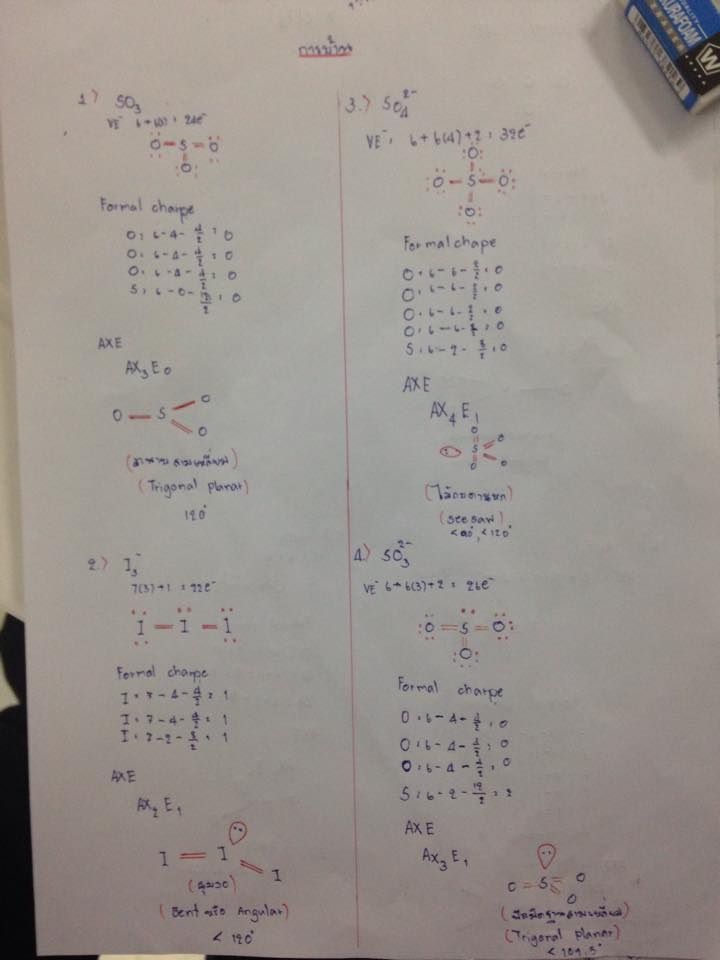 การบ้าน
1.) SO₃
VE⁻ 6+6(3) = 24e⁻
O = S = O
O
Formal charpe
O = 6-4-4/2 = 0
O = 6-4-4/2 = 0
O = 6-4-4/2 = 0
S = 6-0-12/2 = 0
AXE
AX₃E₀
O S O
O
(Trigonal planar)
120°
2.) I₃⁻
7(3)+1 = 22e⁻
I = I = I
Formal charpe
I = 7-4-4/2 = 1
I = 7-4-4/2 = 1
I = 7-2-8/2 = 1
AXE
AX₂E₁
I = I
I
(มุมงอ)
(Bent หรือ Angular)
< 120°
3.) SO₄²⁻
VE⁻ = 6+6(4)+2 = 32e⁻
O
O - S - O
O
Formal chape
O = 6-6-2/2 = 0
O = 6-6-2/2 = 0
O = 6-6-2/2 = 0
O = 6-6-2/2 = 0
S = 6-2-8/2 = 0
AXE
AX₄E₁
O
S O
O O
(ไม้กระดานหก)
(see saw)
<90°, <120°
4.) SO₃²⁻
VE⁻ 6+6(3)+2 = 26e⁻
O = S = O
O
Formal charpe
O = 6-4-4/2 = 0
O = 6-4-4/2 = 0
O = 6-4-4/2 = 0
S = 6-2-12/2 = 2
AXE
AX₃E₁
O = S O
O
(Trigonal planar)
< 109.5°
DURAFOAM
W